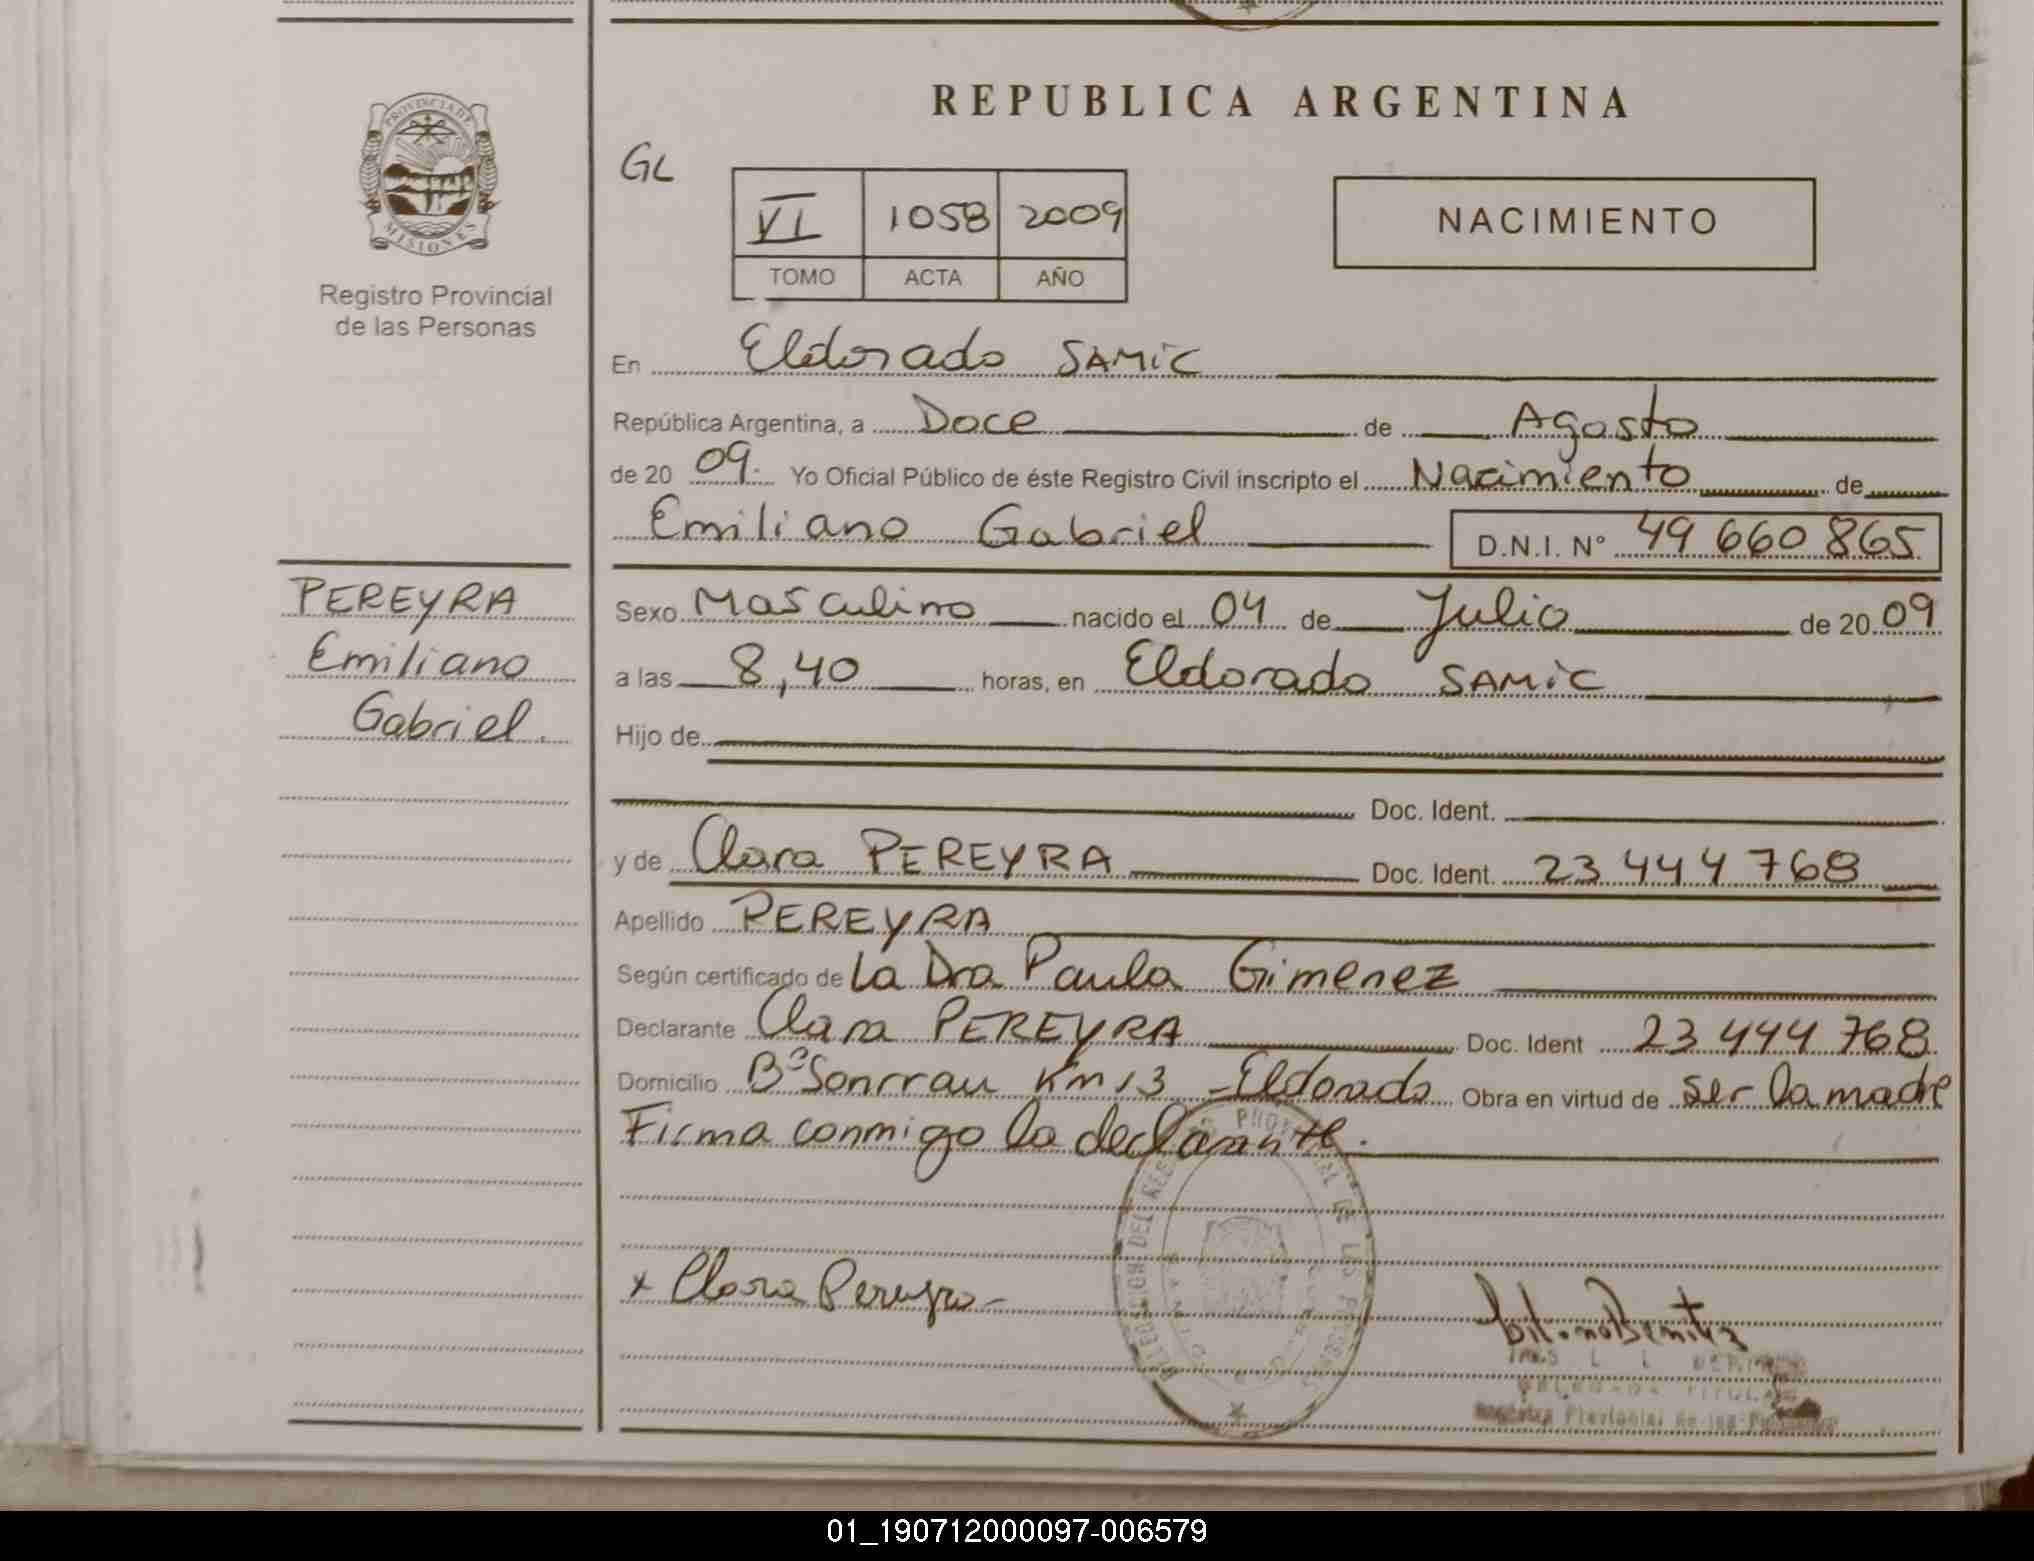 REPUBLICA ARGENTINA
PROVINCIA DE
MISIONES
Registro Provincial
de las Personas
GL
VI 1058 2009
TOMO ACTA AÑO
NACIMIENTO
En Eldorado SAMIC
República Argentina, a Doce de Agosto
de 20 09. Yo Oficial Público de éste Registro Civil inscripto el Nacimiento de
Emiliano Gabriel D.N.I. N° 49 660 865
PEREYRA
Emiliano
Gabriel.
Sexo Masculino nacido el 04 de Julio de 20 09
a las 8,40 horas, en Eldorado SAMIC
Hijo de
Doc. Ident.
y de Clara PEREYRA Doc. Ident. 23 444 768
Apellido PEREYRA
Según certificado de La Dra Paula Gimenez
Declarante Clara PEREYRA Doc. Ident 23 444 768
Domicilio B° Km 13 - Eldorado Obra en virtud de ser la madre
Firma conmigo la declarante.
x Clara Pereyra
01_190712000097-006579